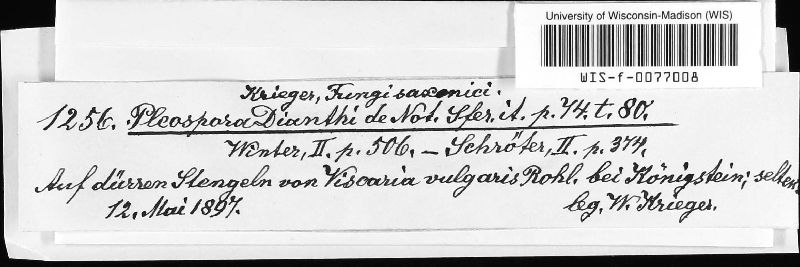 University of Wisconsin-Madison (WIS)
WIS-f-0077008
Krieger, Fungi saxonici.
1256. Pleospora Dianthi de Not. Sfer. it. p. 74. t. 80.
Winter, II. p. 506. – Schröter, II. p. 374.
Auf dürren Stengeln von Viscaria vulgaris Röhl. bei Königstein; selten.
12. Mai 1897. leg. W. Krieger.